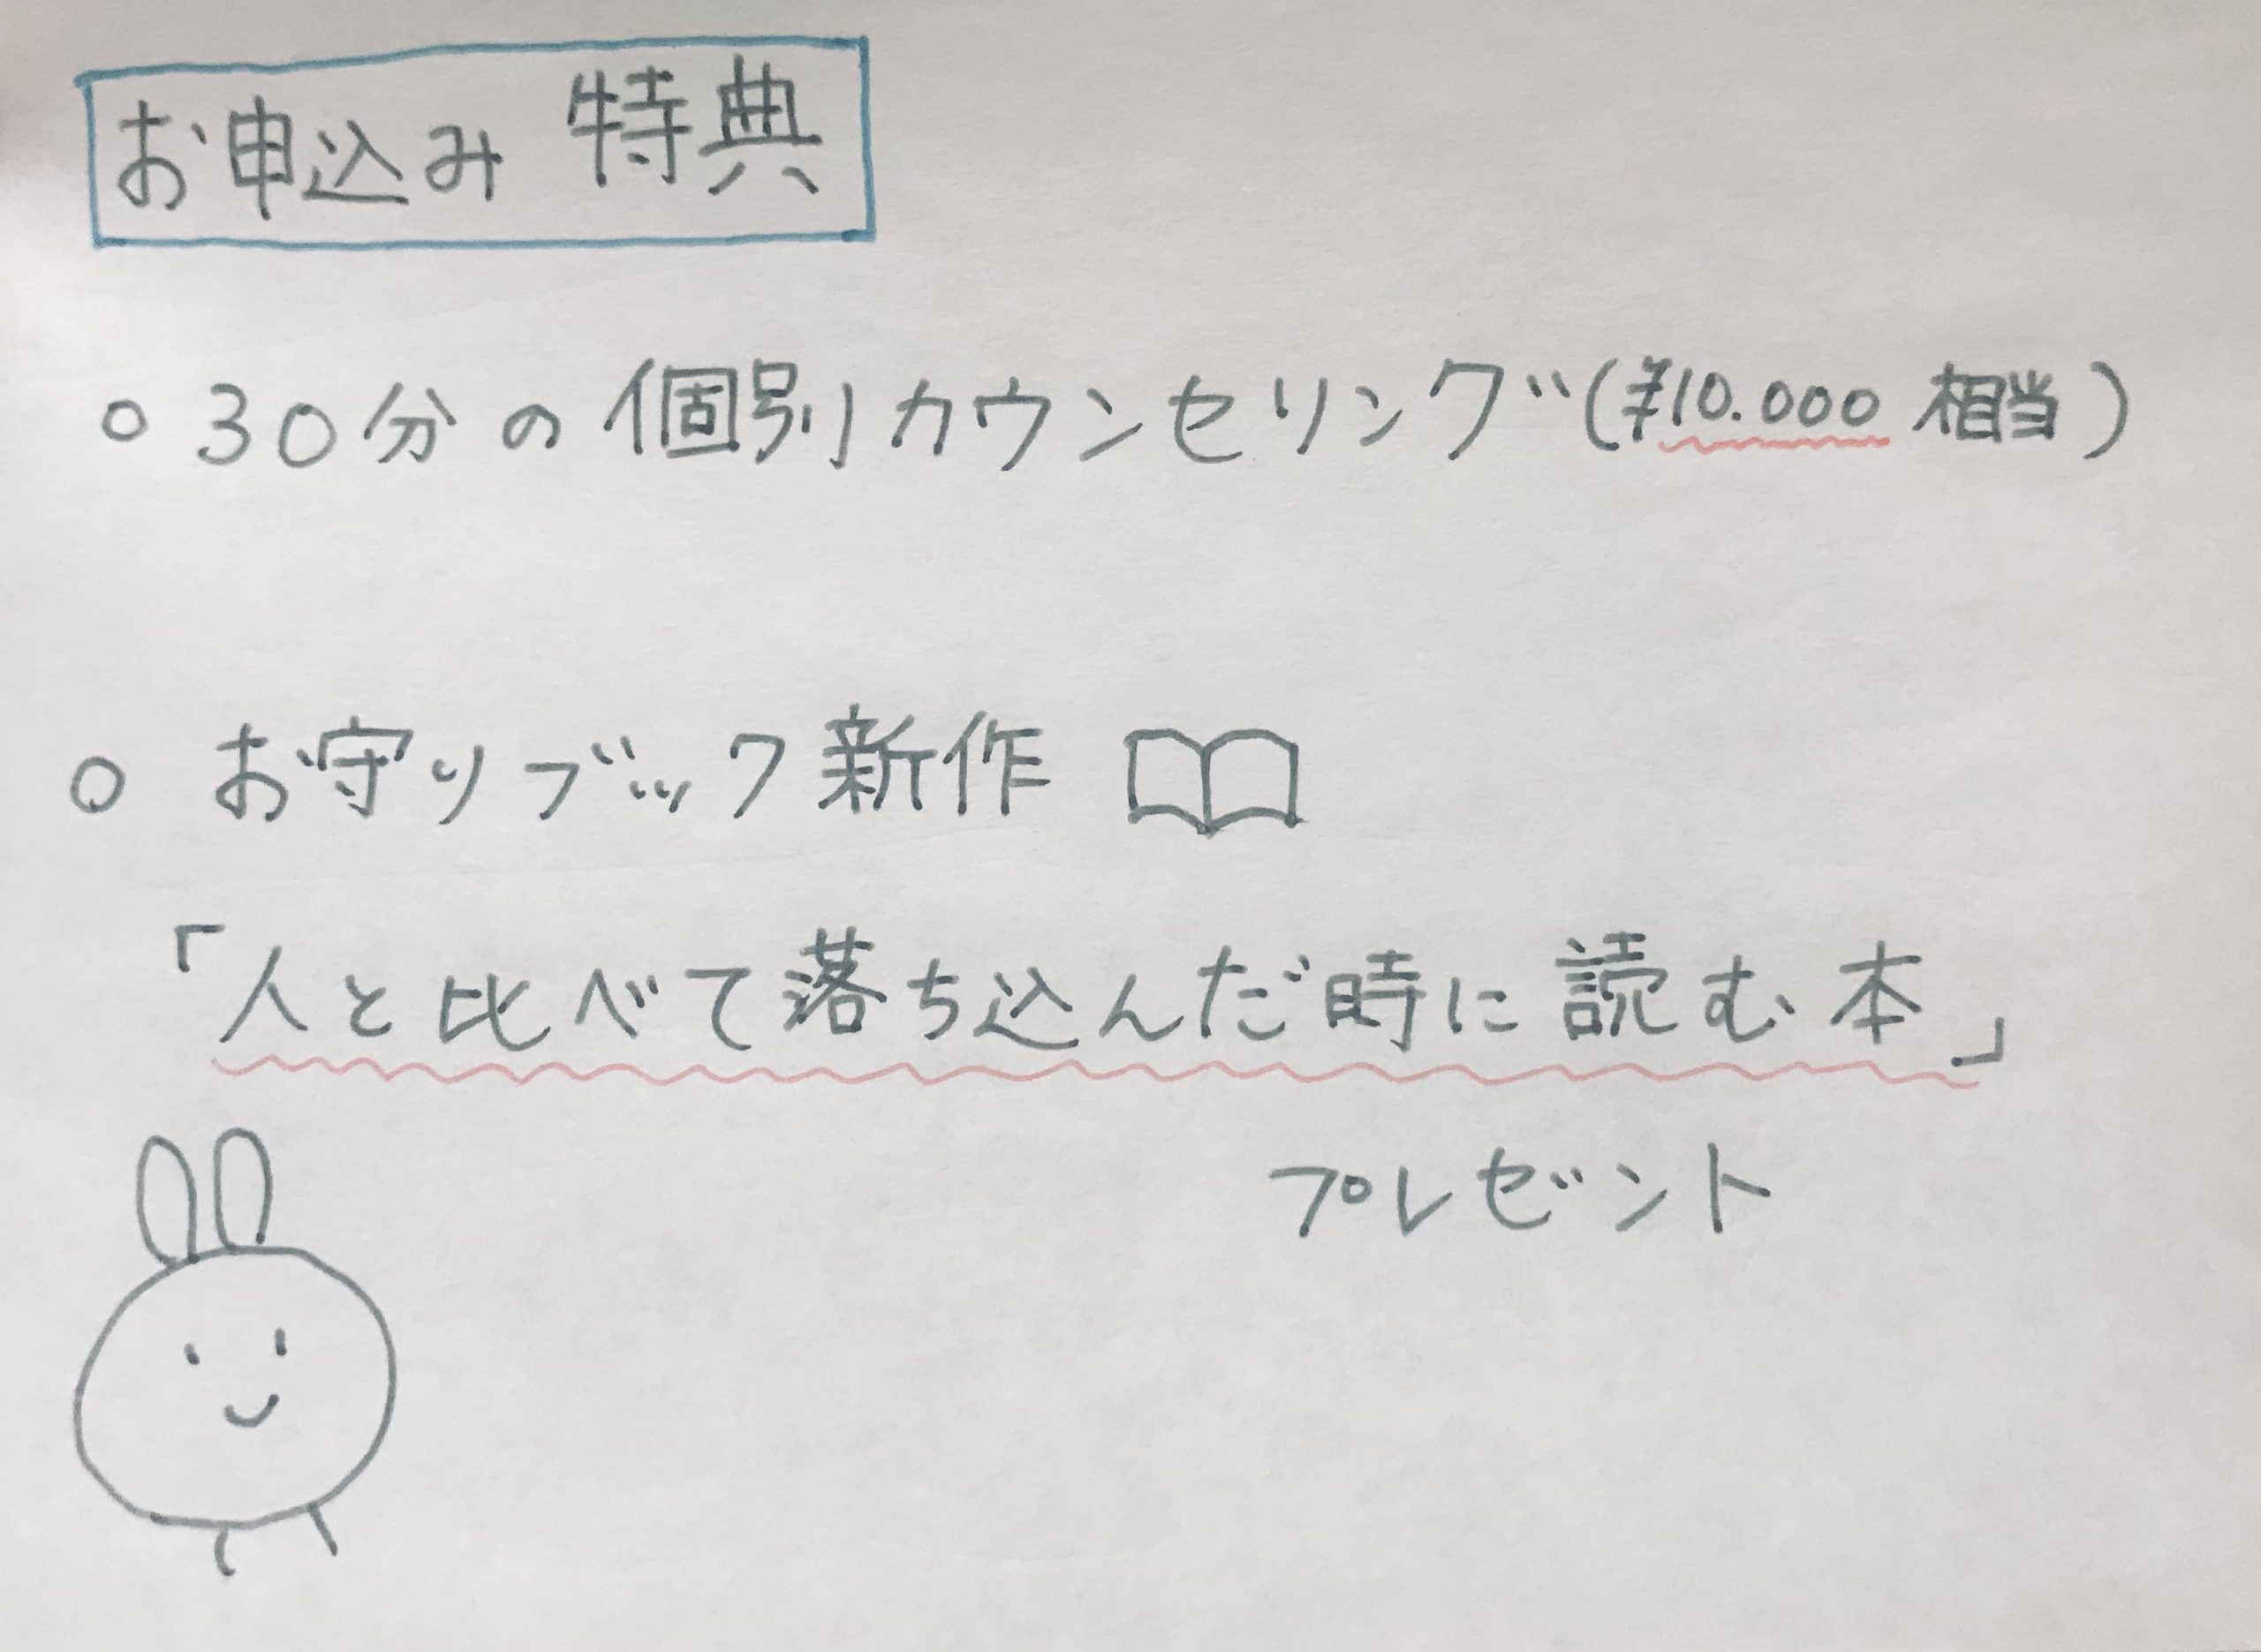 お申込み 特典
○ 30分の個別カウンセリング(¥10.000 相当)
○ お守りブック新作
「人と比べて落ち込んだ時に読む本」
プレゼント